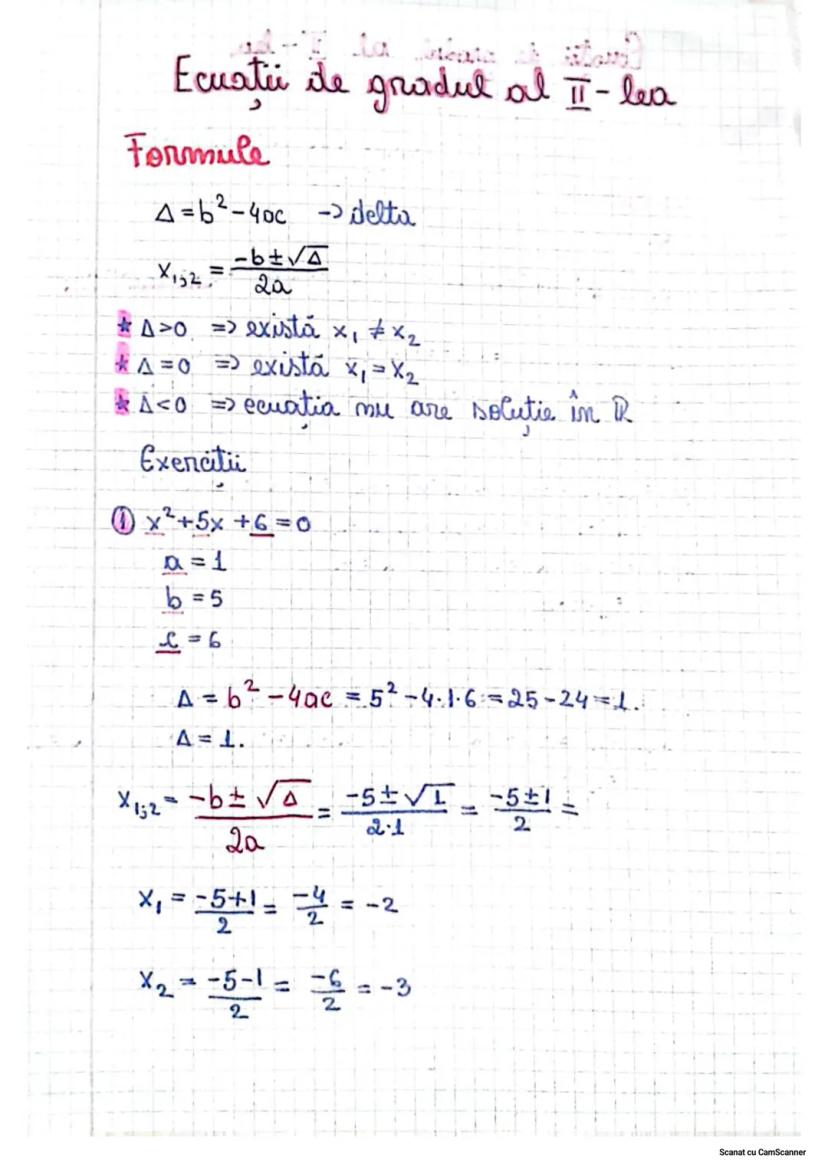 Ecuații de gradul al II-lea
Formule
Δ = b² - 4ac -> delta
x₁;₂ = (-b ± √Δ) / 2a
* Δ>0 => există x₁ ≠ x₂
* Δ=0 => există x₁ = x₂
* Δ<0 => ecuația nu are soluție în ℝ
Exerciții
① x² + 5x + 6 = 0
a = 1
b = 5
c = 6
Δ = b² - 4ac = 5² - 4·1·6 = 25 - 24 = 1.
Δ = 1.
x₁;₂ = (-b ± √Δ) / 2a = (-5 ± √1) / 2·1 = (-5 ± 1) / 2 =
x₁ = (-5+1) / 2 = -4 / 2 = -2
x₂ = (-5-1) / 2 = -6 / 2 = -3
Scanat cu CamScanner